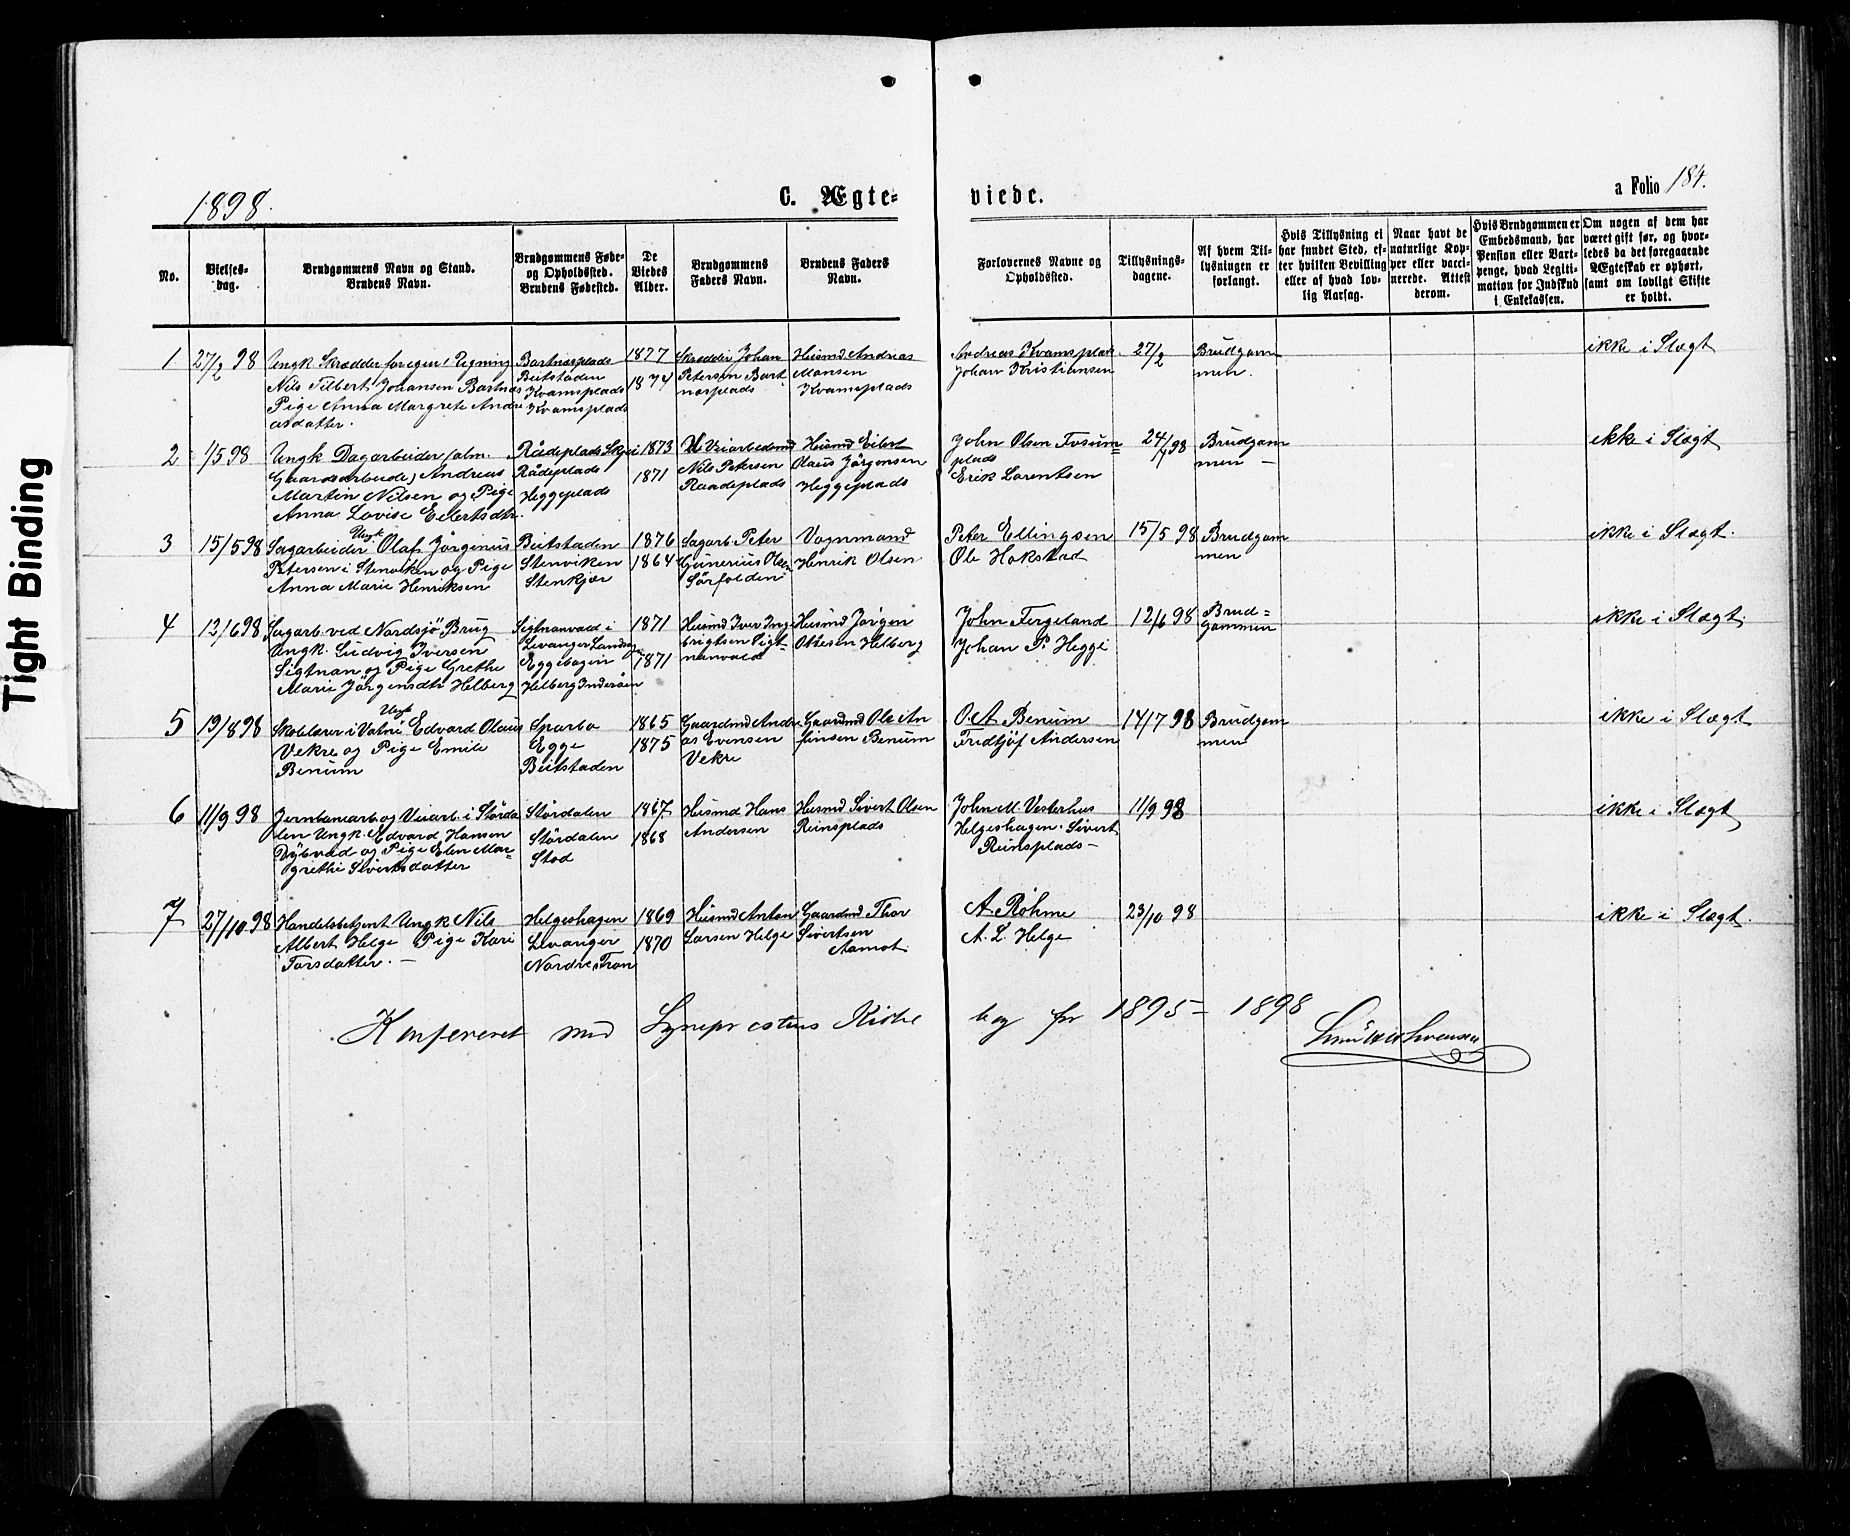 1898.
C. Ægte-
viede.
a Folio 184.
No.
Vielses-
dag.
Brudgommens Navn og Stand.
Brudens Navn.
Brudgommens Føde-
og Opholdssted.
Brudens Fødested.
De
Viedes
Alder.
Brudgommens
Faders Navn.
Brudens Faders
Navn.
Forlovernes Navne og
Opholdssted.
Tillysnings-
dagene.
Af hvem Til-
lysningen er
forlangt.
Hvis Tillysning ei
har fundet Sted, ef-
ter hvilken Bevilling
eller af hvad lov-
lig Aarsag.
Naar havt de
naturlige Kop-
per eller vacci-
nerede. Attest
derom.
Hvis Brudgommen er
Embedsmand, har
Pension eller Vart-
penge, hvad Legiti-
mation for Indskud
i Enkekassen.
Om nogen af dem har
været gift før, og hvor-
ledes da det foregaaende
Ægteskab er ophørt,
samt om lovligt Skifte
er holdt.
1
27/2 98
Ungk Skrædder for egen Regning
Nils Filbert Johansen Bartnæs
Pige Anna Margrete Andre
asdatter.
Bartnæsplads
Beitstaden
Kvamsplads
Kvamsplads
1877
1874
Skrædder Johan
Petersen Bart
næsplads
Husmd Andreas
Monsen
Kvamsplads
Andreas Kvamsplad
Johan Kristiansen
27/2
Brudgom
men.
ikke i Slægt
2
1/5 98
Ungk Dagarbeider (alm.
Gaardsarbeide) Andreas
Martin Nilsen og Pige
Anna Lovise Eilertsdtr.
Rådeplads Skjei
Rådeplads
Heggeplads
1873
1871
Veiarbeidsmd
Nils Petersen
Raadeplads
Husmd Eilert
Olaus Jörgensen
Heggeplads
John Olsen Fosum=
plads
Erik Lorentsen
24/4 98
Brudgom
men -
ikke i Slægt
3
15/5 98
Ungk
Sagarbeider Olaf Jörginus
Petersen i Stenviken og Pige
Anna Marie Henriksen
Beitstaden
Stenviken
Stenkjær
1876
1864
Sagarb. Peter
Gunerius Olsen
Sörfolden
Vognmand
Henrik Olsen
Peter Ellingsen
Ole Hokstad
15/5 98
Brudgom
men
ikke i Slægt.
4
12/6 98
Sagarb. ved Nordsjö Brug
Ungk. Ludvig Iversen
Sigtnan og Pige Grethe
Marie Jörgensdtr Helberg
Sigtnanvald i
Levanger Landsog
Eggebogen
Helberg Inderøen
1871
1871
Husmd Iver Inge
brigtsen Sigt-
nanvald
Husmd Jörgen
Ottesen Helberg
John Fergeland
Johan P. Hegge
12/6 98
Brud=
gommen
ikke i Slægt.
5
19/8 98
Ungk
Skolelærer i Vatne Edvard Olaus
Vekre og Pige Emilie
Benum
Sparbo
Egge
Beitstaden
1865
1875
Gaardmd Andre
as Evensen
Vekre
Gaardmd Ole An
finsen Benum
O. A Benum
Fridtjöf Andersen
14/7 98
Brudgom
men
ikke i Slægt
6
11/9 98
Jernbanearb. og Veiarb. i Störda
len Ungk. Edvard Hansen
Dybvad og Pige Elen Mar-
grethe Sivertsdatter
Stördalen
Stördalen
Stod
1867
1868
Husmd Hans
Andersen
Husmd Sivert Olsen
Reinsplads
John M. Vesterhus
Helgeshagen. Sivert
Reinsplads -
11/9 98
ikke i Slægt
7
27/10 98
Handelsbetjent Ungk Nils
Albert Helge Pige Kari
Torsdatter. -
Helgeshagen
Levanger
Nordre Tron
1869
1870
Husmd Anton
Larsen Helge
Gaardmd Thor
Sivertsen
Aamot
A. Röhme
A. L. Helge
23/10 98
ikke i Slægt.
Konfereret med Sogneprestens Kirke
bog for 1895 - 1898
Tight Binding